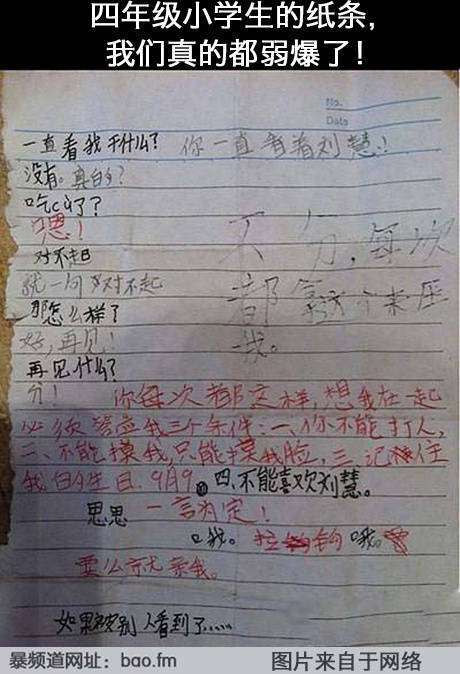 四年级小学生的纸条,
我们真的都弱爆了!
No.
Date
一直看我干什么? 你一直看着刘慧!
没有。真的?
吃C了?
嗯!
对不起
就一句对不起
那怎么样了
好,再见!
再见什么?
分!
不分,每次
都拿这个来压
我。
你每次都这样,想我在一起
必须答应我三个条件:一、你不能打人,
二、不能摸我,只能摸我脸,三、记住
我的生日.9月9。四.不能喜欢刘慧。
思思 一言为定!
口我。拉钩 哦。
要么就亲我。
如果被别人看到了......
暴频道网址:bao.fm
图片来自于网络